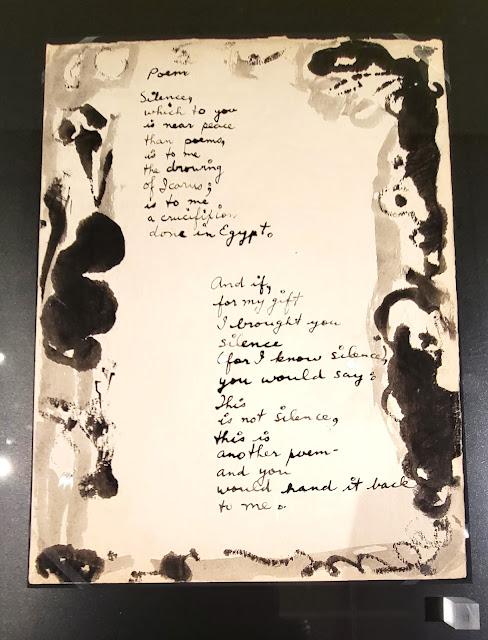 Poem
Silence,
which to you
is near peace
than poems,
is to me
the drowing
of Icarus;
is to me
a crucifixion
done in Egypt.
And if,
for my gift
I brought you
silence
(for I know silence,
you would say:
This
is not silence,
this is
another poem-
and you
would hand it back
to me.